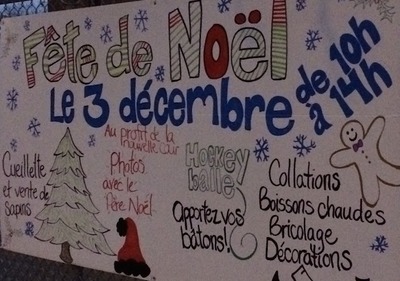 Fête de Noël
Le 3 décembre
de 10h
à 14h
Cueillette
et vente de
sapins
Au profit de la
nouvelle cour
Photos
avec le
Père Noël
Hockey
balle
Apportez vos
bâtons!
Collations
Boissons chaudes
Bricolage
Décorations